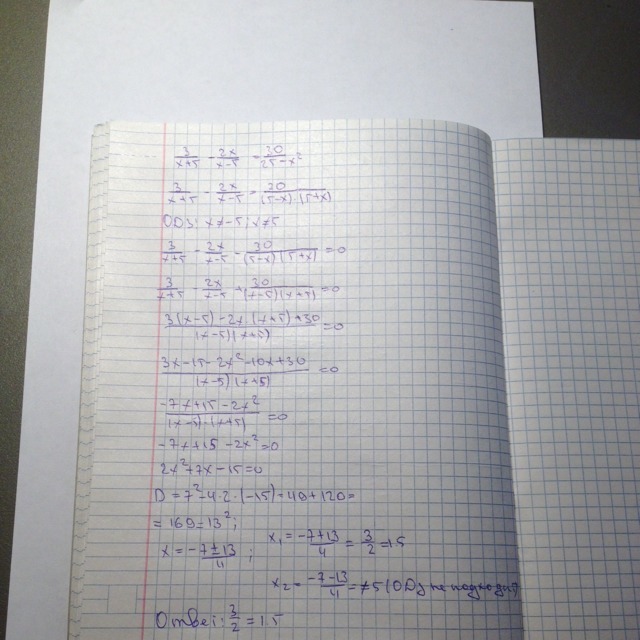 3/(x+5) - 2x/(x-5) = 30/(25-x²)
3/(x+5) - 2x/(x-5) = 30/((5-x)·(5+x))
ОДЗ: x≠-5; x≠5
3/(x+5) - 2x/(x-5) - 30/((5-x)(5+x)) = 0
3/(x+5) - 2x/(x-5) + 30/((x-5)(x+5)) = 0
(3(x-5) - 2x(x+5)+30)/((x-5)(x+5)) = 0
(3x-15-2x²-10x+30)/((x-5)(x+5)) = 0
(-7x+15-2x²)/((x-5)(x+5)) = 0
-7x+15-2x²=0
2x²+7x-15=0
D = 7²-4·2·(-15)=49+120=
=169=13²;
x = (-7±13)/4 ; x₁ = (-7+13)/4 = 3/2 = 1.5
x₂ = (-7-13)/4 = -5 (ОДЗ не подходит)
Ответ: 3/2 = 1.5